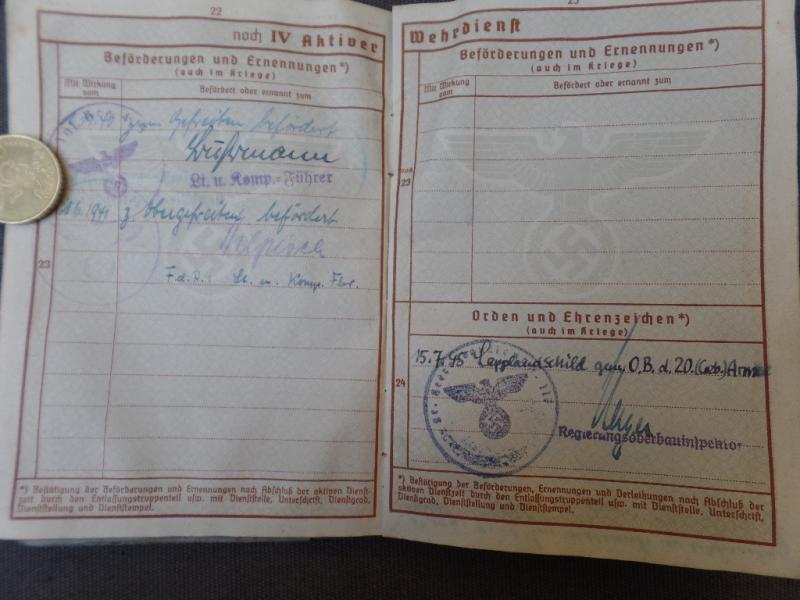 22
noch IV Aktiver
Beförderungen und Ernennungen*)
(auch im Kriege)
Mit Wirkung vom
Befördert oder ernannt zum
zum Gefreiten befördert
Lt. u. Komp.-Führer
1941 z. Obergefreiten befördert
F.d.R. Lt. u. Komp. Fhr.
23
*) Bestätigung der Beförderungen und Ernennungen nach Abschluß der aktiven Dienst-
zeit durch den Entlassungstruppenteil usw. mit Dienststelle, Unterschrift, Dienstgrad,
Dienststellung und Dienststempel.
23
Wehrdienst
Beförderungen und Ernennungen*)
(auch im Kriege)
Mit Wirkung vom
Befördert oder ernannt zum
noch
23
Orden und Ehrenzeichen*)
(auch im Kriege)
15.7.45 Lapplandschild gem. O.B. d. 20. (Geb.) Armee
24
Regierungsoberbauinspektor
*) Bestätigung der Beförderungen, Ernennungen und Verleihungen nach Abschluß der
aktiven Dienstzeit durch den Entlassungstruppenteil usw. mit Dienststelle, Unterschrift,
Dienstgrad, Dienststellung und Dienststempel.